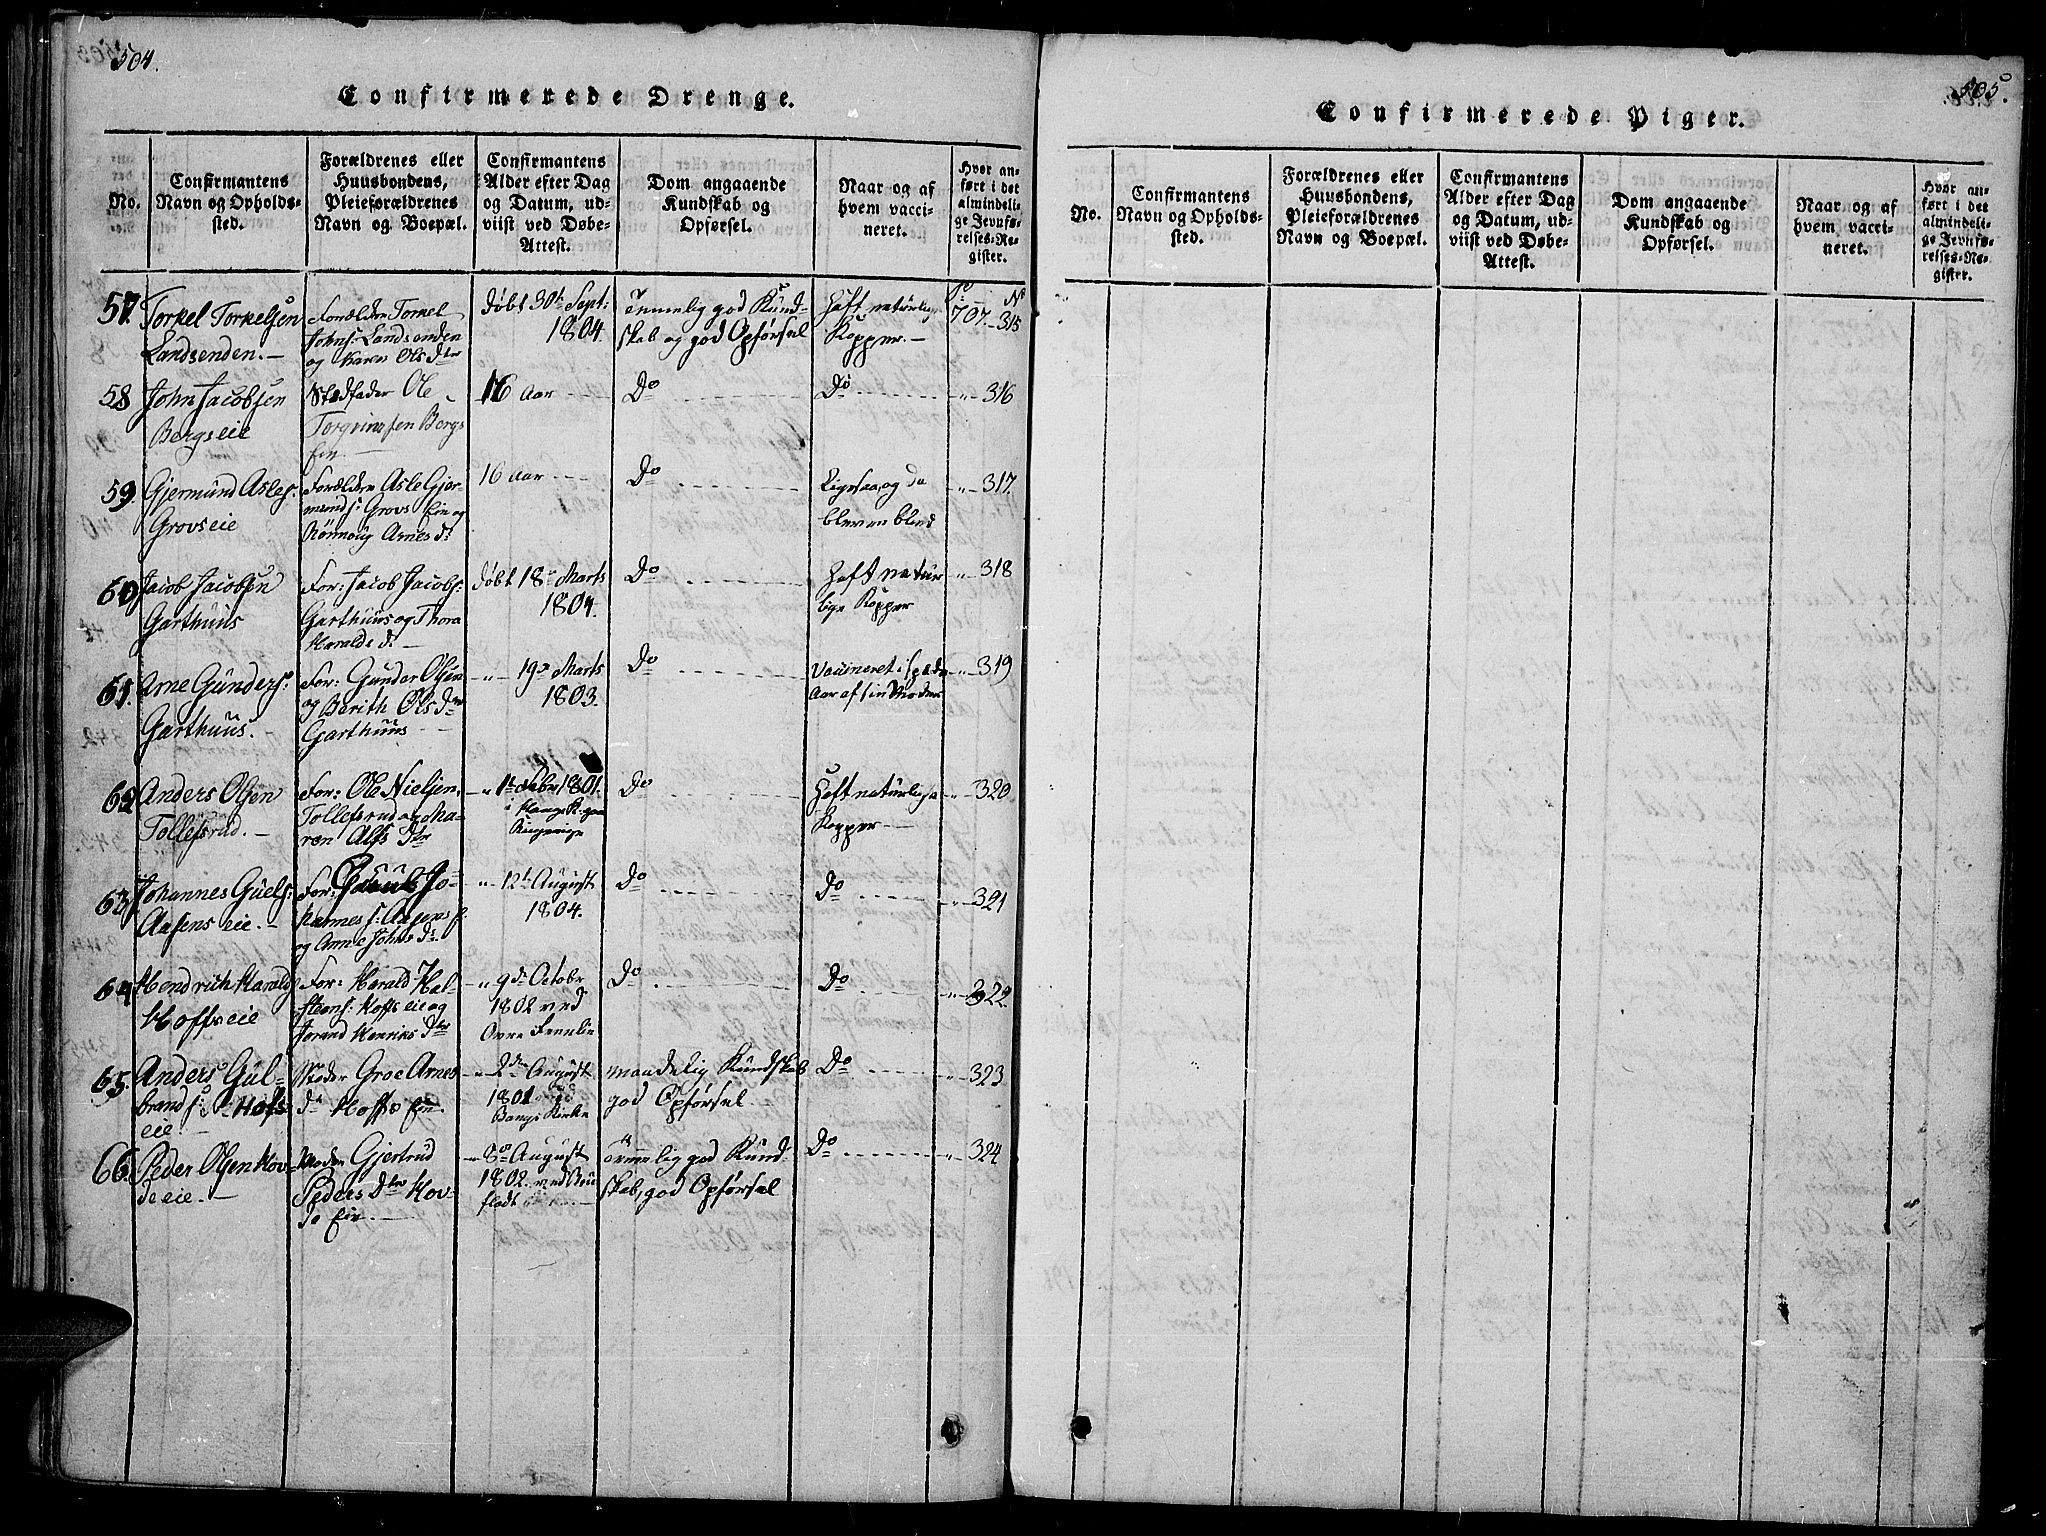 504.
Confirmerede Drenge.
No.
Confirmantens
Navn og Opholds-
sted.
Forældrenes eller
Huusbondens,
Pleieforældrenes
Navn og Boepæl.
Confirmantens
Alder efter Dag
og Datum, ud-
viist ved Døbe-
Attest.
Dom angaaende
Kundskab og
Opførsel.
Naar og af
hvem vacci-
neret.
Hvor an-
ført i det
almindeli-
ge Jevnfø-
relses-Re-
gister.
57
Torkel Torkelsen
Landsenden. -
Forældre Torkel
Johns: Landsenden
og Karen Ols dtr
døbt 30te Sept:
1804.
Temmelig god Kund-
skab og god Opførsel
Haft naturlige
Kopper. -
P:
No
707. - 315
58
John Jacobsen
Bergseie
Stedfader Ole
Torgrimsen Bergs
Eie. -
16 Aar
Do
Do
" 316
59
Gjermund Asles:
Grovseie
Forældre Asle Gjer-
munds: Grovs Eie og
Rönnoug Arnes d:
16 aar
Do
Ligesaa, og da
bleven blind
" 317.
60
Jacob Jacobsen
Garthuus
For: Jacob Jacobs:
Garthuus og Thora
Haralds d: -
døbt 18de Marts
1804.
Do
Haft natur
lige Kopper
" 318
61.
Arne Gunders:
Garthuus. -
For: Gunder Olsen
og Berith Ols dtr
Garthuus
" 19de Marts
1803.
Do
Vacineret i spæde
Aar af sin Moder
" 319
62
Anders Olsen
Tollefsrud. -
For: Ole Nielsen
Tollefsrud og Ma-
ren Alfs dtr
" 1te Febr 1801.
Ringerige
Do
Haft naturlige
Kopper -
" 320
63
Johannes Guuls:
Aasens eie. -
For: Guul Jo-
hannes s: Aasens E.
og Anne Johns d:
" 12te August
1804.
Do
Do
" 321
64
Hendrich Haralds
Hoffseie
For: Harald Hal-
steens: Hoffs eie og
Jorand Henriks dtr
" 9de Octobr
1802 ved
Do
Do
" 322.
65
Anders Gul-
brands: N: Hofs
eie. -
Moder Groe Arnes
dtr Hoffs Eie.
" 2den August
1801
Bangs Kirke
maadelig Kundskab
god Opførsel
Do
" 323
66.
Peder Olsen Hov-
de eie. -
Moder Gjertrud
Peders dtr Hov-
de Eie. -
" 8de August
1802. ved
fladt
Temmelig god Kund-
skab, god Opførsel
Do
" 324
505.
Confirmerede Piger.
No.
Confirmantens
Navn og Opholds-
sted.
Forældrenes eller
Huusbondens,
Pleieforældrenes
Navn og Boepæl.
Confirmantens
Alder efter Dag
og Datum, ud-
viist ved Døbe-
Attest.
Dom angaaende
Kundskab og
Opførsel.
Naar og af
hvem vacci-
neret.
Hvor an-
ført i det
almindeli-
ge Jevnfø-
relses-Re-
gister.